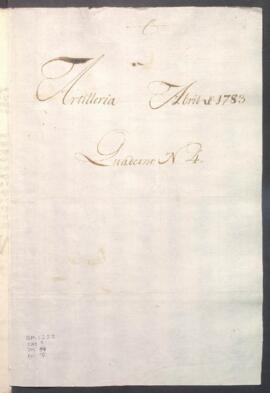 Artilleria Abril de 1783
Quaderno N 4.